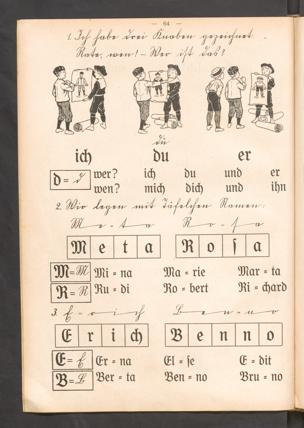 — 64 —
1. Ich habe drei Knaben gezeichnet.
Rate, wen! – Wer ist das?
du
ich du er
d = d wer? ich du und er
wen? mich dich und ihn
2. Wir legen mit Täfelchen Namen:
M e t a R o s a
M e t a R o ſ a
M = M Mi = na Ma = rie Mar = ta
R = R Ru = di Ro = bert Ri = chard
3. E r i ch B e n n o
E r i ch B e n n o
E = E Er = na El = ſe E = dit
B = B Ber = ta Ben = no Bru = no